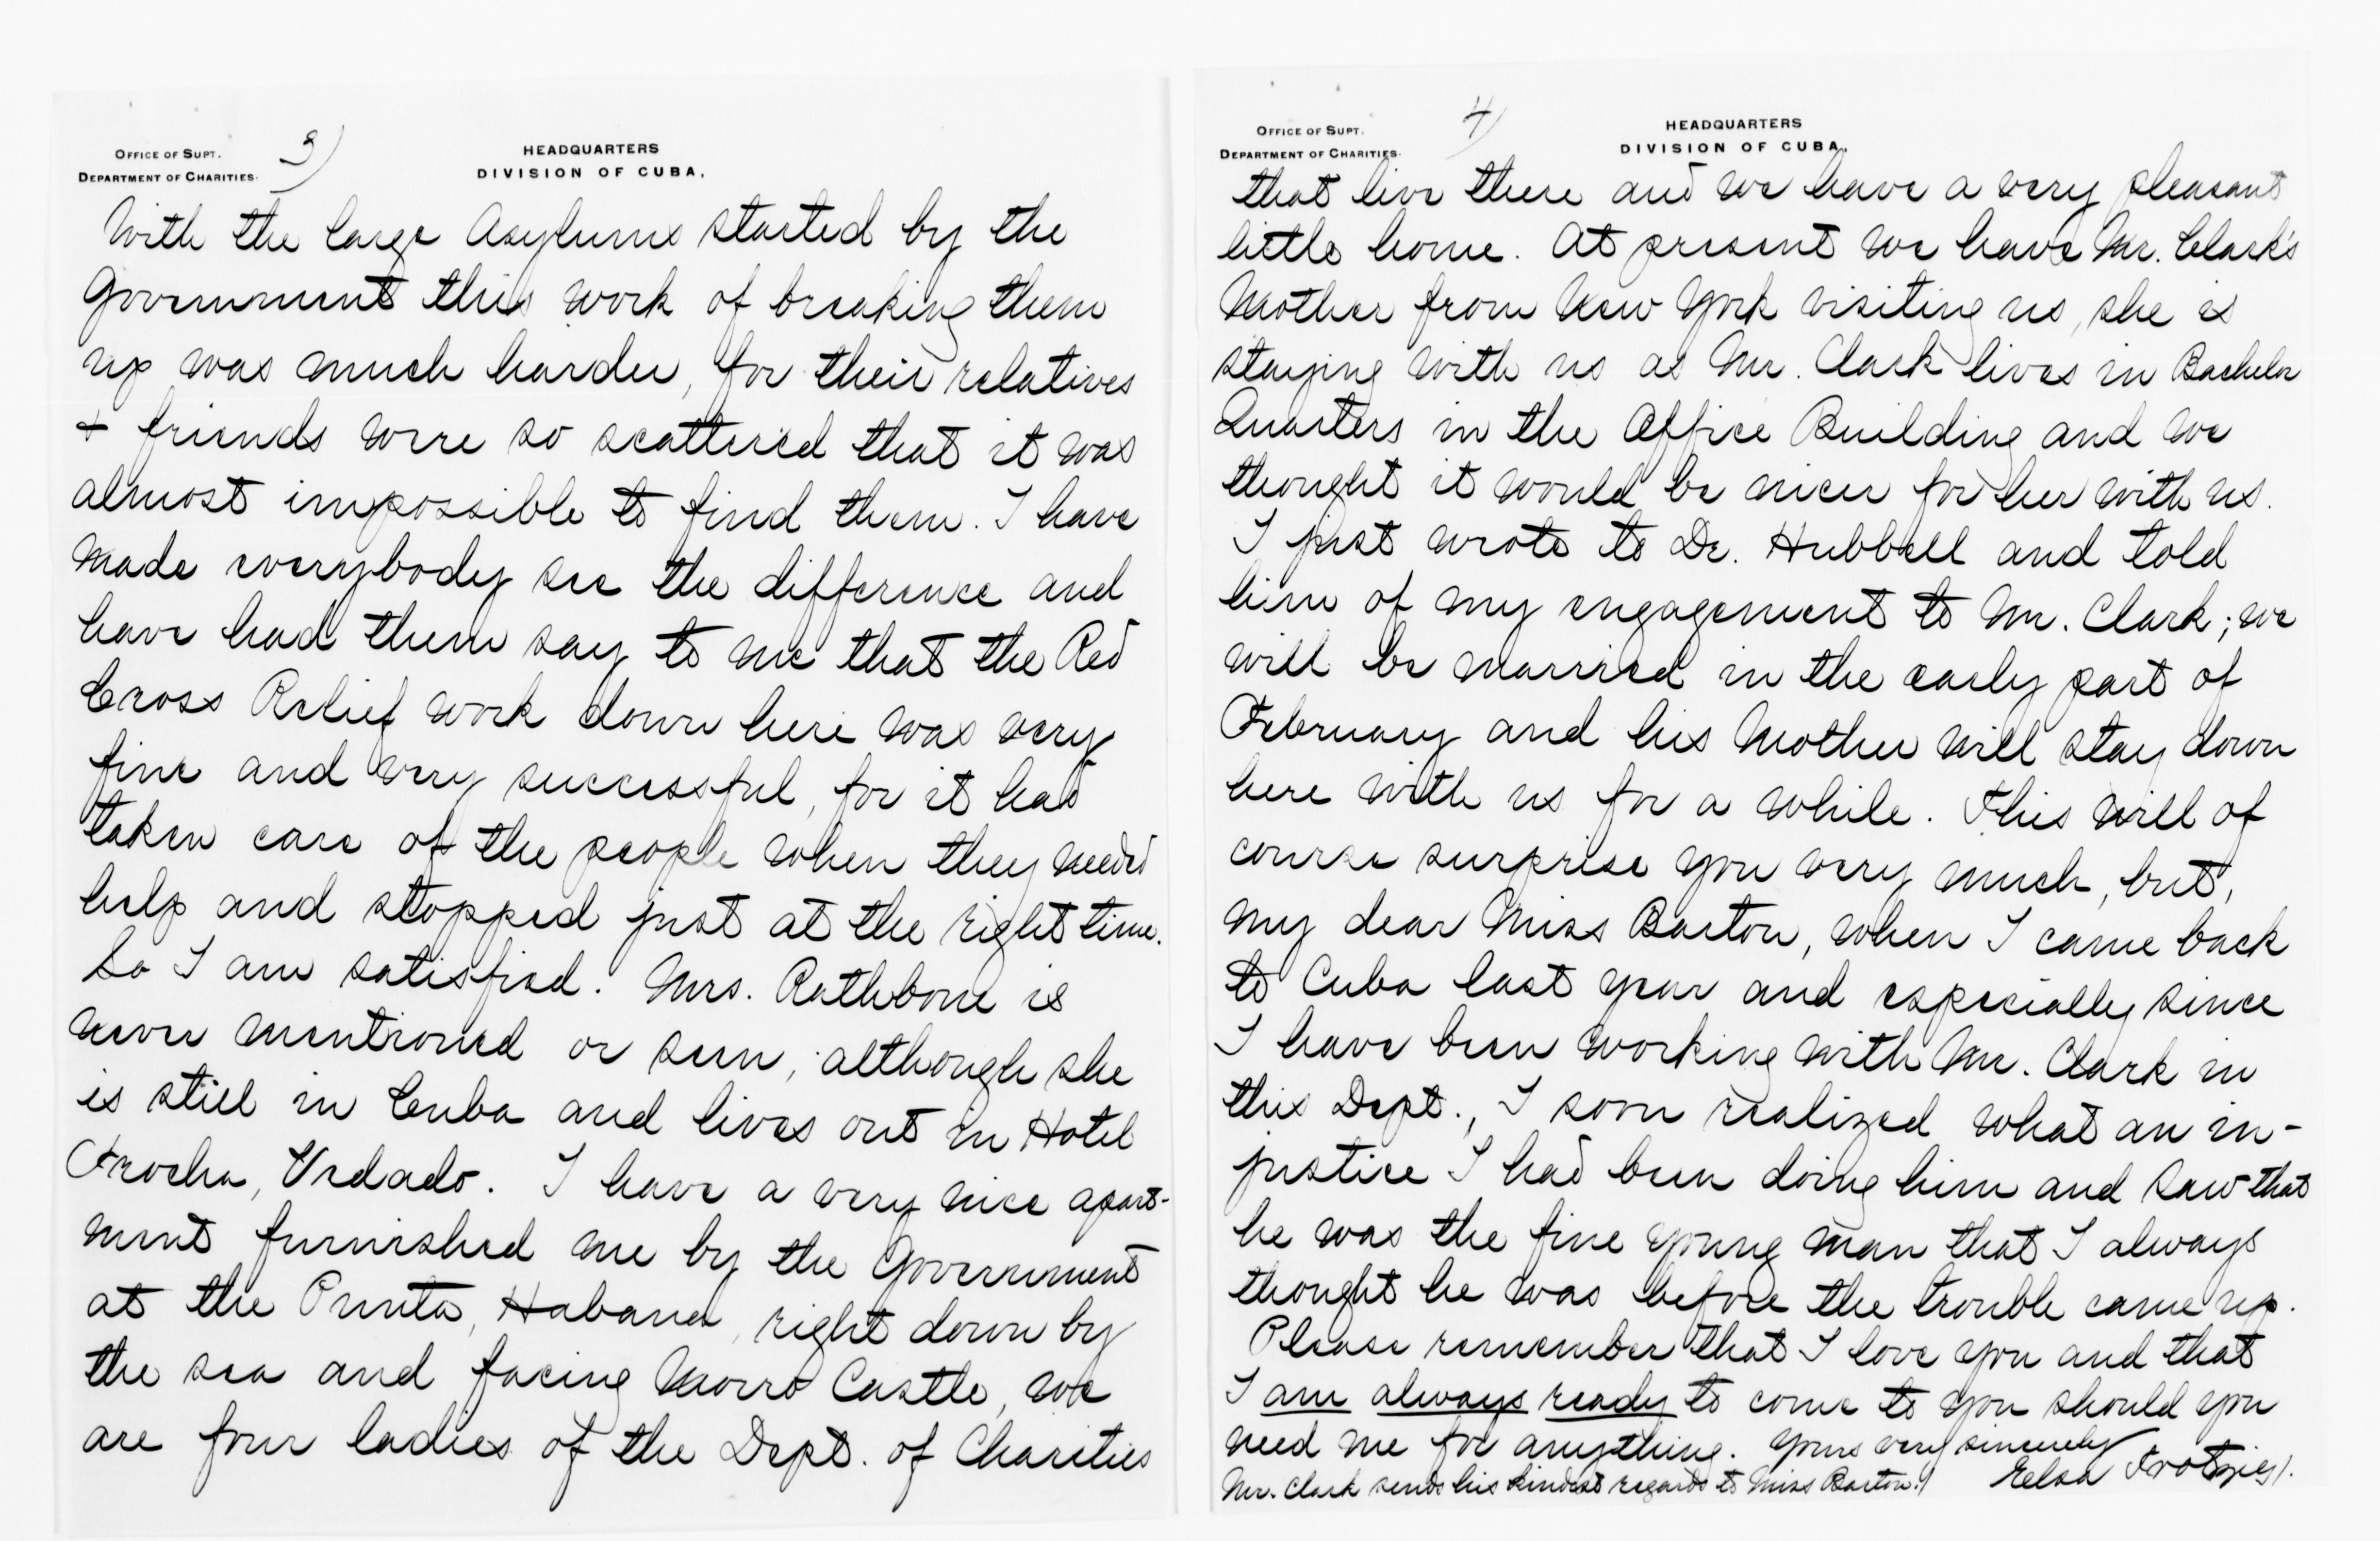 OFFICE OF SUPT.
DEPARTMENT OF CHARITIES.
3)
HEADQUARTERS
DIVISION OF CUBA.
With the large Asylums started by the
Government this work of breaking them
up was much harder, for their relatives
+ friends were so scattered that it was
almost impossible to find them. I have
made everybody see the difference and
have had them say to me that the Red
Cross Relief work down here was very
fine and very successful, for it had
taken care of the people when they needed
help and stopped just at the right time.
So I am satisfied. Mrs. Rathbone is
never mentioned or seen, although she
is still in Cuba and lives out in Hotel
Trocha, Vedado. I have a very nice apart-
ment furnished me by the Government
at the Punta, Habana, right down by
the sea and facing Morro Castle, we
are four ladies of the Dept. of Charities
OFFICE OF SUPT.
DEPARTMENT OF CHARITIES.
4)
HEADQUARTERS
DIVISION OF CUBA.
that live there and we have a very pleasant
little home. At present we have Mr. Clark's
Mother from New York visiting us, she is
staying with us as Mr. Clark lives in Bachelor
Quarters in the Office Building and we
thought it would be nicer for her with us.
I just wrote to Dr. Hubbell and told
him of my engagement to Mr. Clark; we
will be married in the early part of
February and his Mother will stay down
here with us for a while. This will of
course surprise you very much, but,
my dear Miss Barton, when I came back
to Cuba last year and especially since
I have been working with Mr. Clark in
this Dept., I soon realized what an in-
justice I had been doing him and saw that
he was the fine young man that I always
thought he was before the trouble came up.
Please remember that I love you and that
I am always ready to come to you should you
need me for anything. Yours very sincerely
Mr. Clark sends his kindest regards to Miss Barton!